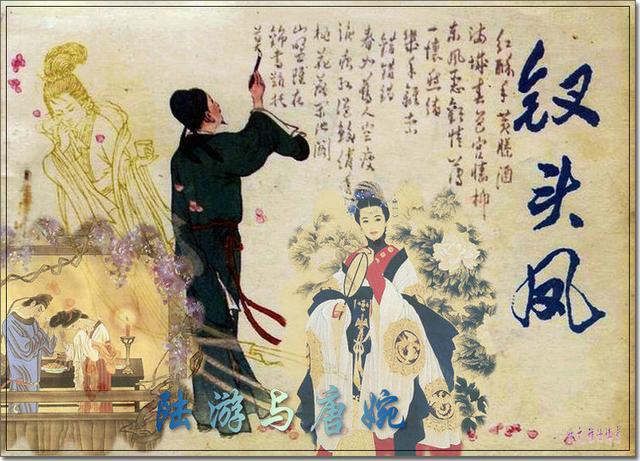 钗头凤
红酥手黄縢酒
满城春色宫墙柳
东风恶欢情薄
一怀愁绪
几年离索
错错错
春如旧人空瘦
泪痕红浥鲛绡透
桃花落闲池阁
山盟虽在
锦书难托
莫
陆游与唐婉